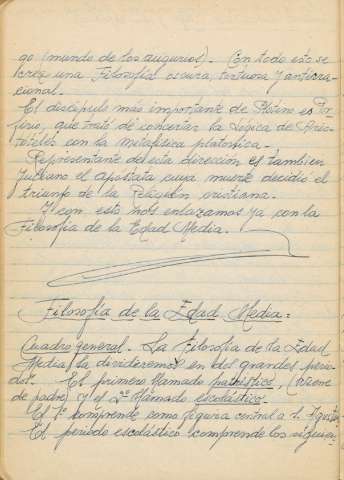 go (mundo de los augurios). Con todo esto se
crea una Filosofía oscura, tortuosa y antirra-
cional.
El discípulo más importante de Plotino es Por-
firio, que trató de concertar la Lógica de Aris-
tóteles con la metafísica platónica.
Representante de esta dirección es también
Juliano el apóstata cuya muerte decidió el
triunfo de la Religión cristiana.
Y con esto nos enlazamos ya con la
Filosofía de la Edad Media.
Filosofía de la Edad Media.
Cuadro general. La Filosofía de la Edad
Media, la dividiremos en dos grandes perio-
dos. El primero llamado patrístico, (viene
de padre) y el 2º llamado escolástico.
El 1º comprende como figura central a S. Agustín
El periodo escolástico comprende los siguien-